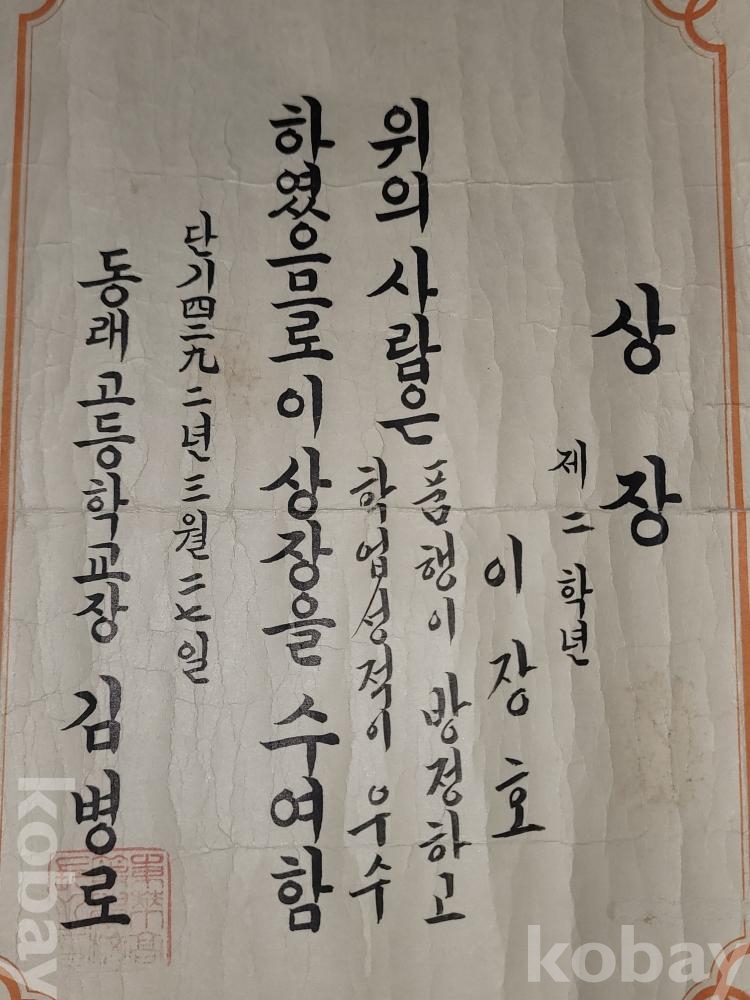 상장
제二학년
이장호
위의 사람은 품행이 방정하고
학업성적이 우수
하였으므로 이 상장을 수여함
단기四二九二년 三월 二七일
동래고등학교장 김병로
kobay
kobay